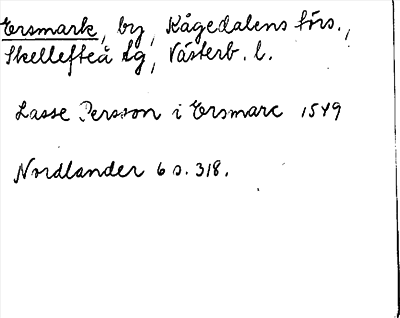 Ersmark, by, Kågedalens förs.,
Skellefteå tg, Västerb. l.
Lasse Persson i Ersmarc 1549
Nordlander 6 s. 318.